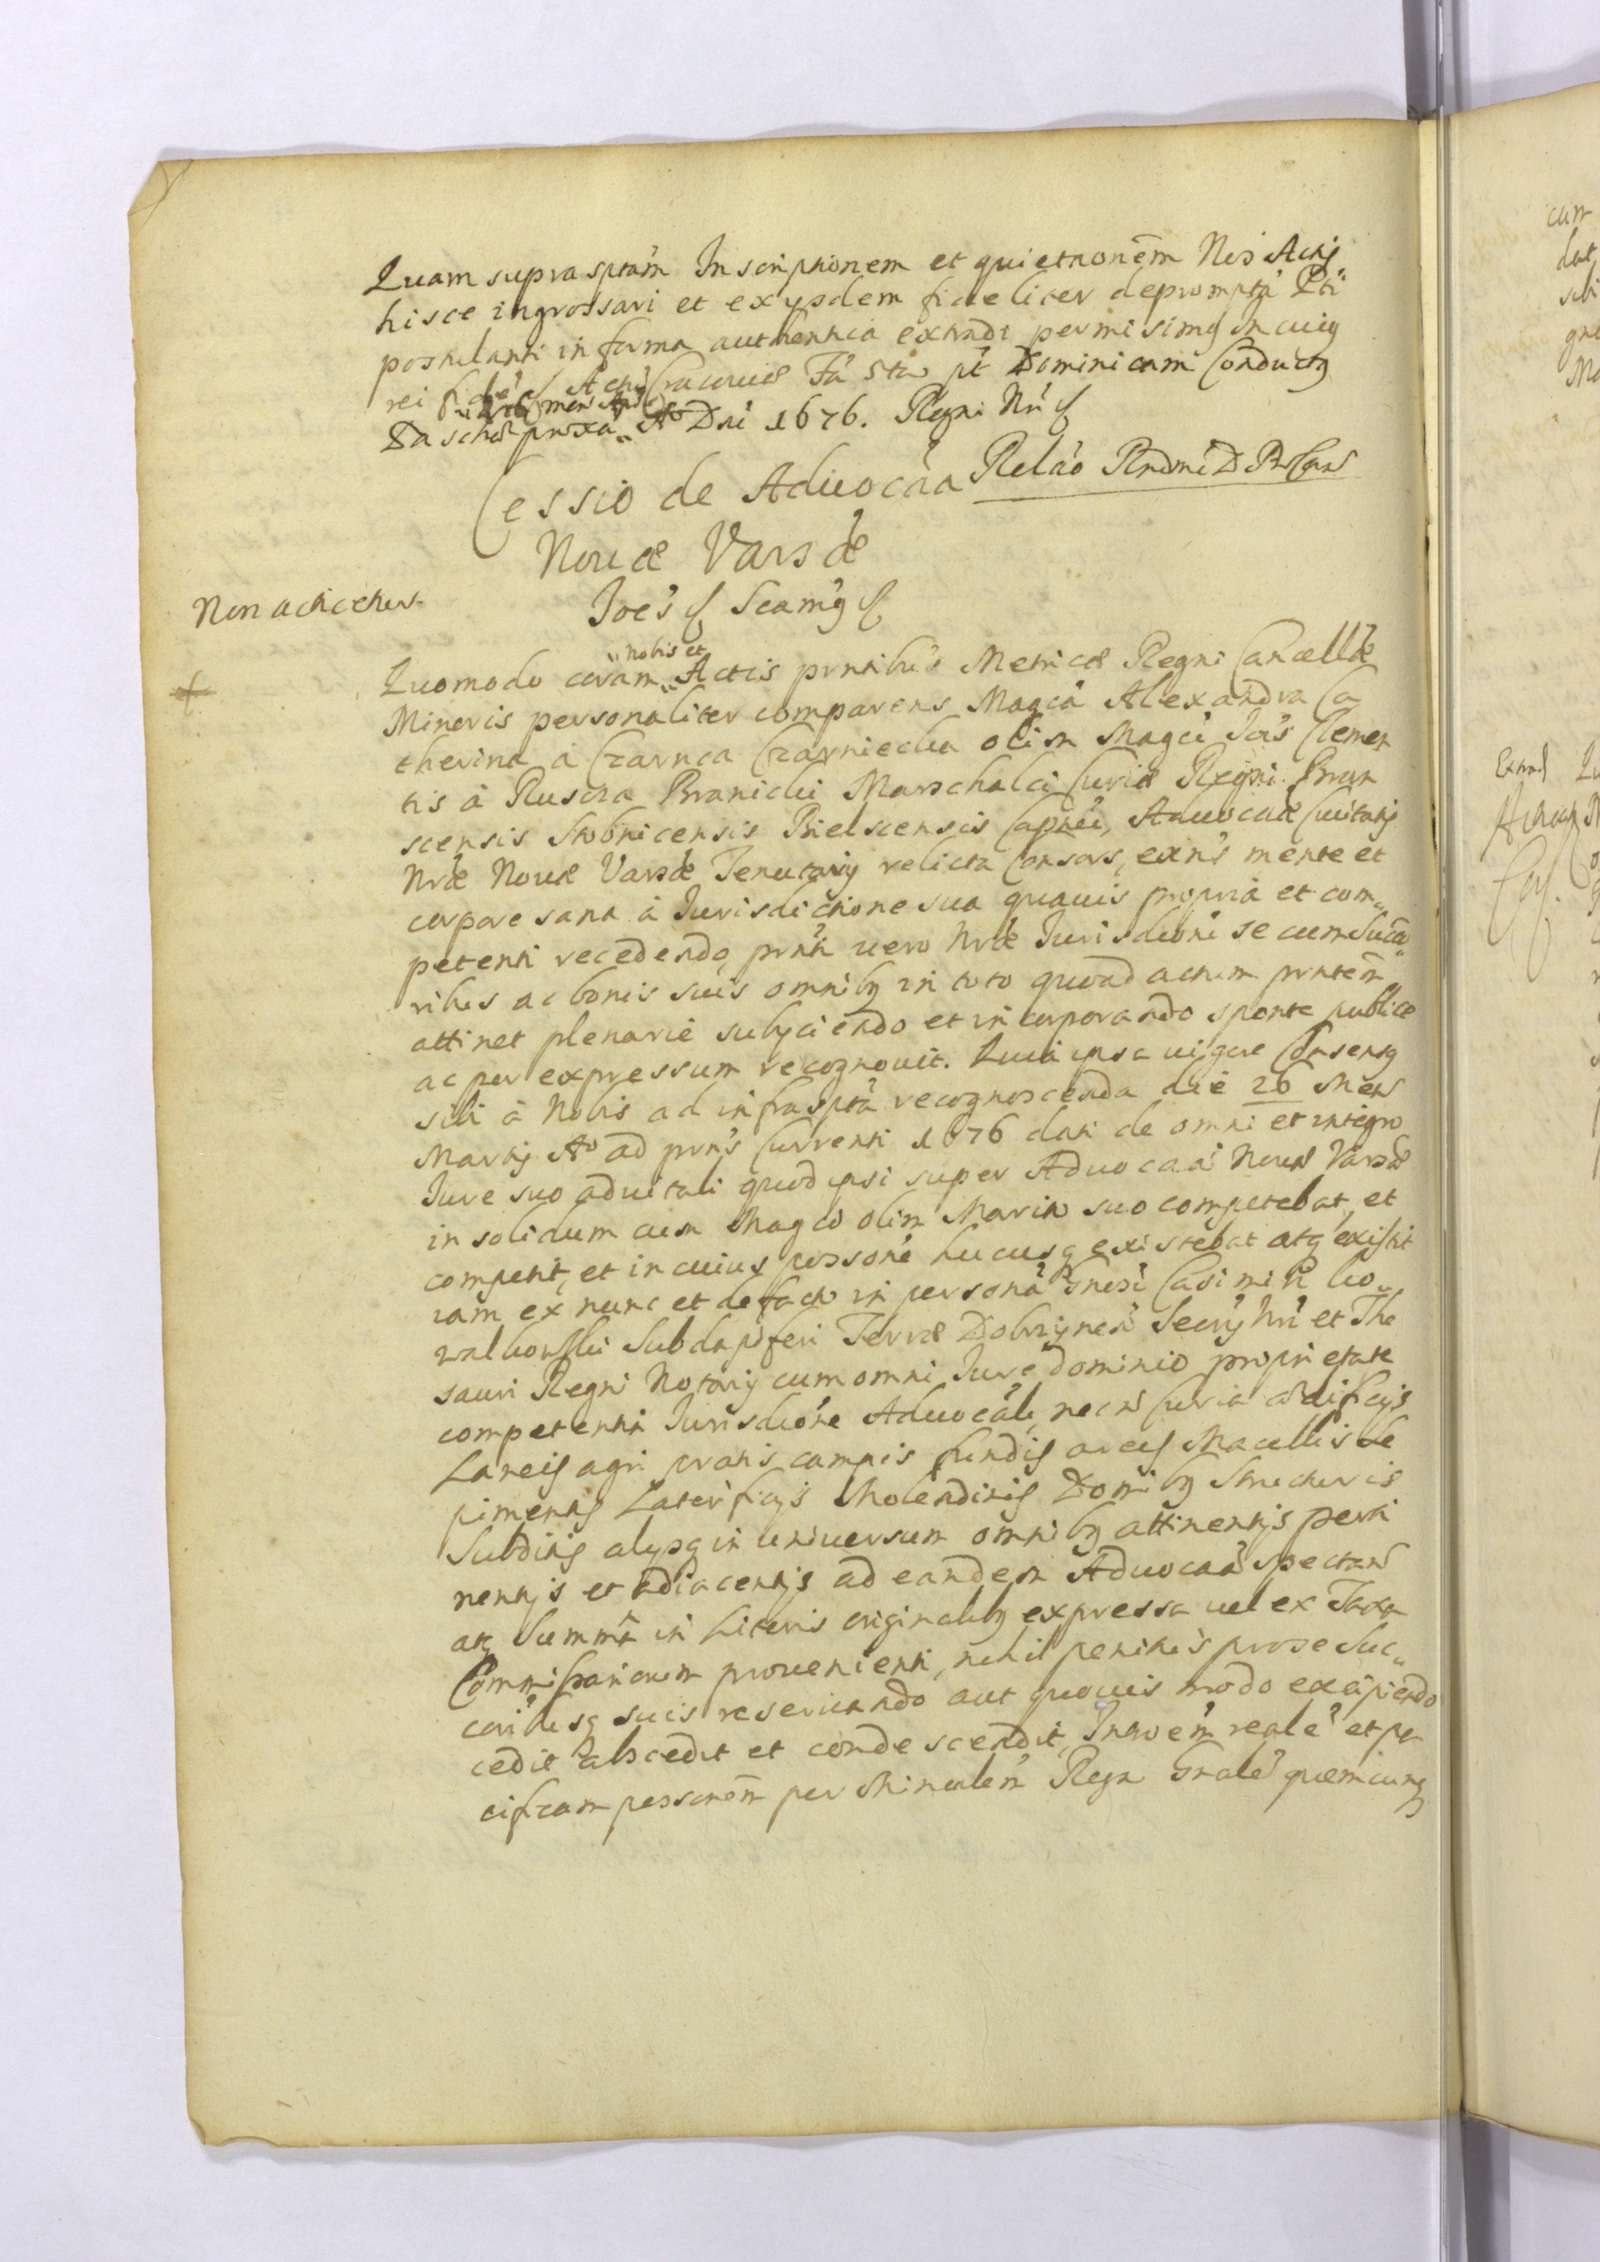 Quam suprasptam Inscriptionem et quietnonem Nos Actis
hisce ingrossari et ex ysdem fideliter depromptā Pti
postulanti in forma authentica extradi permisimꝰ In cuiꝰ
rei fidē Act Cracouiæ Fā 5ta pt Dominicam Conductꝰ
Paschæ proxa Ao Dni 1676. Regni Nri
Relāo Rndmi D ProCan
Cessio de Aduocāa
Nouæ Varsæ
Joēs Scimꝰ
Non actictetur
nobis et
Quomodo coram Actis prntibus Metricæ Regni Cancellæ
Minoris personaliter comparens Magca Alexandra Ca
therina à Czarnca Czarniecka olim Magci Jois Clemen
tis à Ruscza Branicki Marschalci Curiæ Regni Bran
scensis Stobnicensis Bielscensis Capnei, Aduocatiæ Ciuitatis
Nræ Nouæ Varsæ Tenutarij relicta Consors, exns mente et
corpore sana à Jurisdictione sua quauis propria et com
petenti recedendo, prnti uero Nræ Jurisdioni se cum Succo
ribus ac bonis suis omnibꝰ in toto quoad actum prntem
attinet plenarie subijciendo et incorporando sponte publice
ac per expressum recognouit. Quia ipsa uigore Consensꝰ
sibi à Nobis ad infrasptā recognoscenda die 26 Mens
Martij Ao ad prns Currenti 1676 dati de omni et integro
Jure suo aduitali quod ipsi super Aduocaā Nouæ Varsæ
in solidum cum Magco olim Marito suo competebat, et
competit, et in cuius possone hucusq existebat atq existit
iam ex nunc et de facto in personā Gnosi Casimiri Ko
walkowski Subdapiferi Terræ Dobrzynen Secrij Nri et The
sauri Regni Notarij cum omni Jure dominio proprietate
competenti Jurisdione Aduocali, necn Curia ædificijs
Laneis agri pratis campis fundis areis Macellis
pimentis Laterficijs Molendinis Domibꝰ Structuris
Subditis alijsq in uniuersum omnibꝰ attinentijs perti
nentijs et adiacentijs ad eandem Aduocaā spectan
atq Summā in Literis originalibꝰ expressa uel ex Taxa
Commissariorum proueniente, nihil penitus pro se Suc
coribusq suis reseruando aut quouis modo excipiendo
cedit abscedit et condescendit, Intromem reale et pa
cificam possonem per Ministerialem Regn Gnale quemcunq